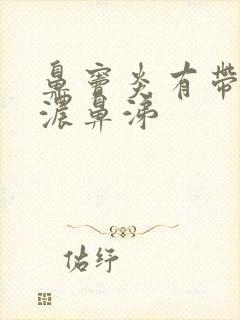 鼻窦炎有帶
濃鼻涕
佑纾